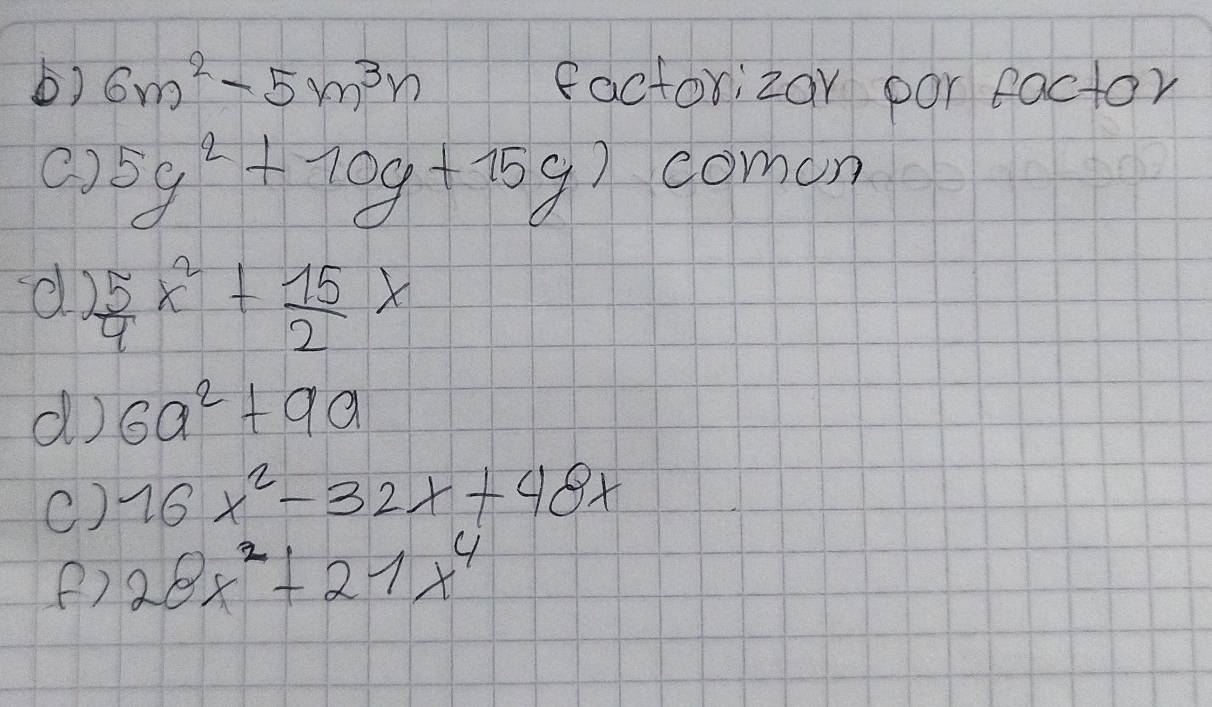 b) 6m² - 5m³n factorizar por factor
c) 5y² + 10y + 15y) comun
d) 5/4 x² + 15/2 x
d) 6a² + 9a
c) 16x² - 32x + 48x
f) 28x² + 21x⁴